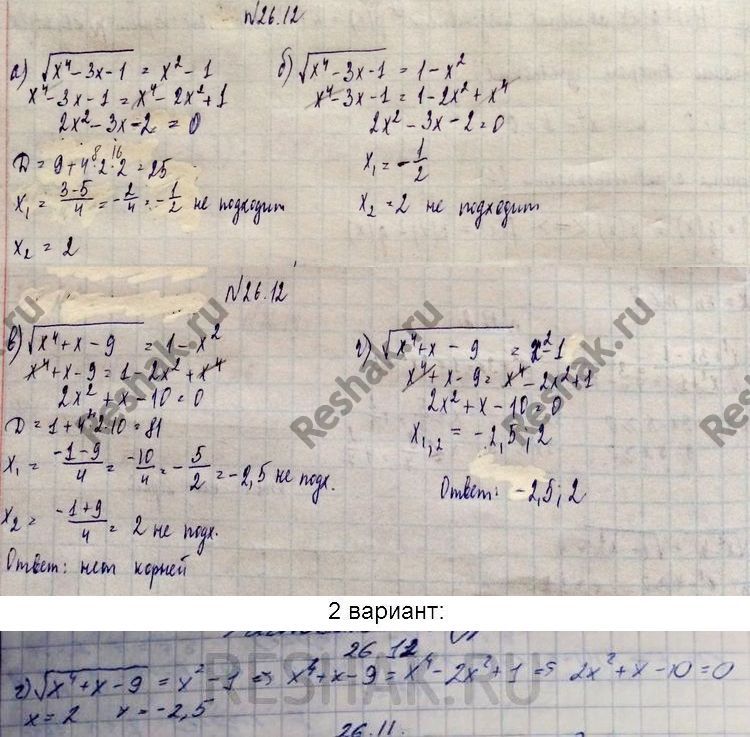 №26.12
а) √(x⁴-3x-1) = x²-1
x⁴-3x-1 = x⁴-2x²+1
2x²-3x-2 = 0
D = 9+4·2·2 = 25
8 16
x₁ = (3-5)/4 = -2/4 = -1/2 не подходит
x₂ = 2
б) √(x⁴-3x-1) = 1-x²
x⁴-3x-1 = 1-2x²+x⁴
2x²-3x-2=0
x₁ = -1/2
x₂ = 2 не подходит
№26.12
в) √(x⁴+x-9) = 1-x²
x⁴+x-9 = 1-2x²+x⁴
2x²+x-10=0
D = 1+4·2·10 = 81
x₁ = (-1-9)/4 = -10/4 = -5/2 = -2,5 не подх.
x₂ = (-1+9)/4 = 2 не подх.
Ответ: нет корней
г) √(x⁴+x-9) = x²-1
x⁴+x-9 = x⁴-2x²+1
2x²+x-10=0
x₁,₂ = -2,5; 2
Ответ: -2,5; 2
Reshak.ru
Reshak.ru
Reshak.ru
Reshak.ru
2 вариант:
26.12
г) √(x⁴+x-9) = x²-1 => x⁴+x-9 = x⁴-2x²+1 => 2x²+x-10=0
x=2 x=-2,5
RESHAK.RU
26.11.